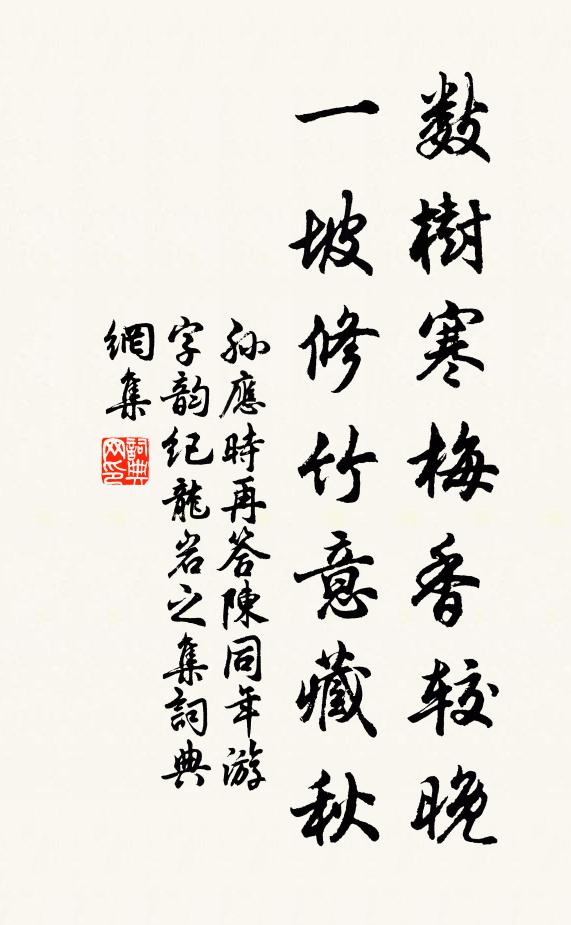 數樹寒梅香较晚
一坡修竹意藏秋
孙應時再答陳同年游
字韵纪龍岩之集詞典
網集
詞典网印